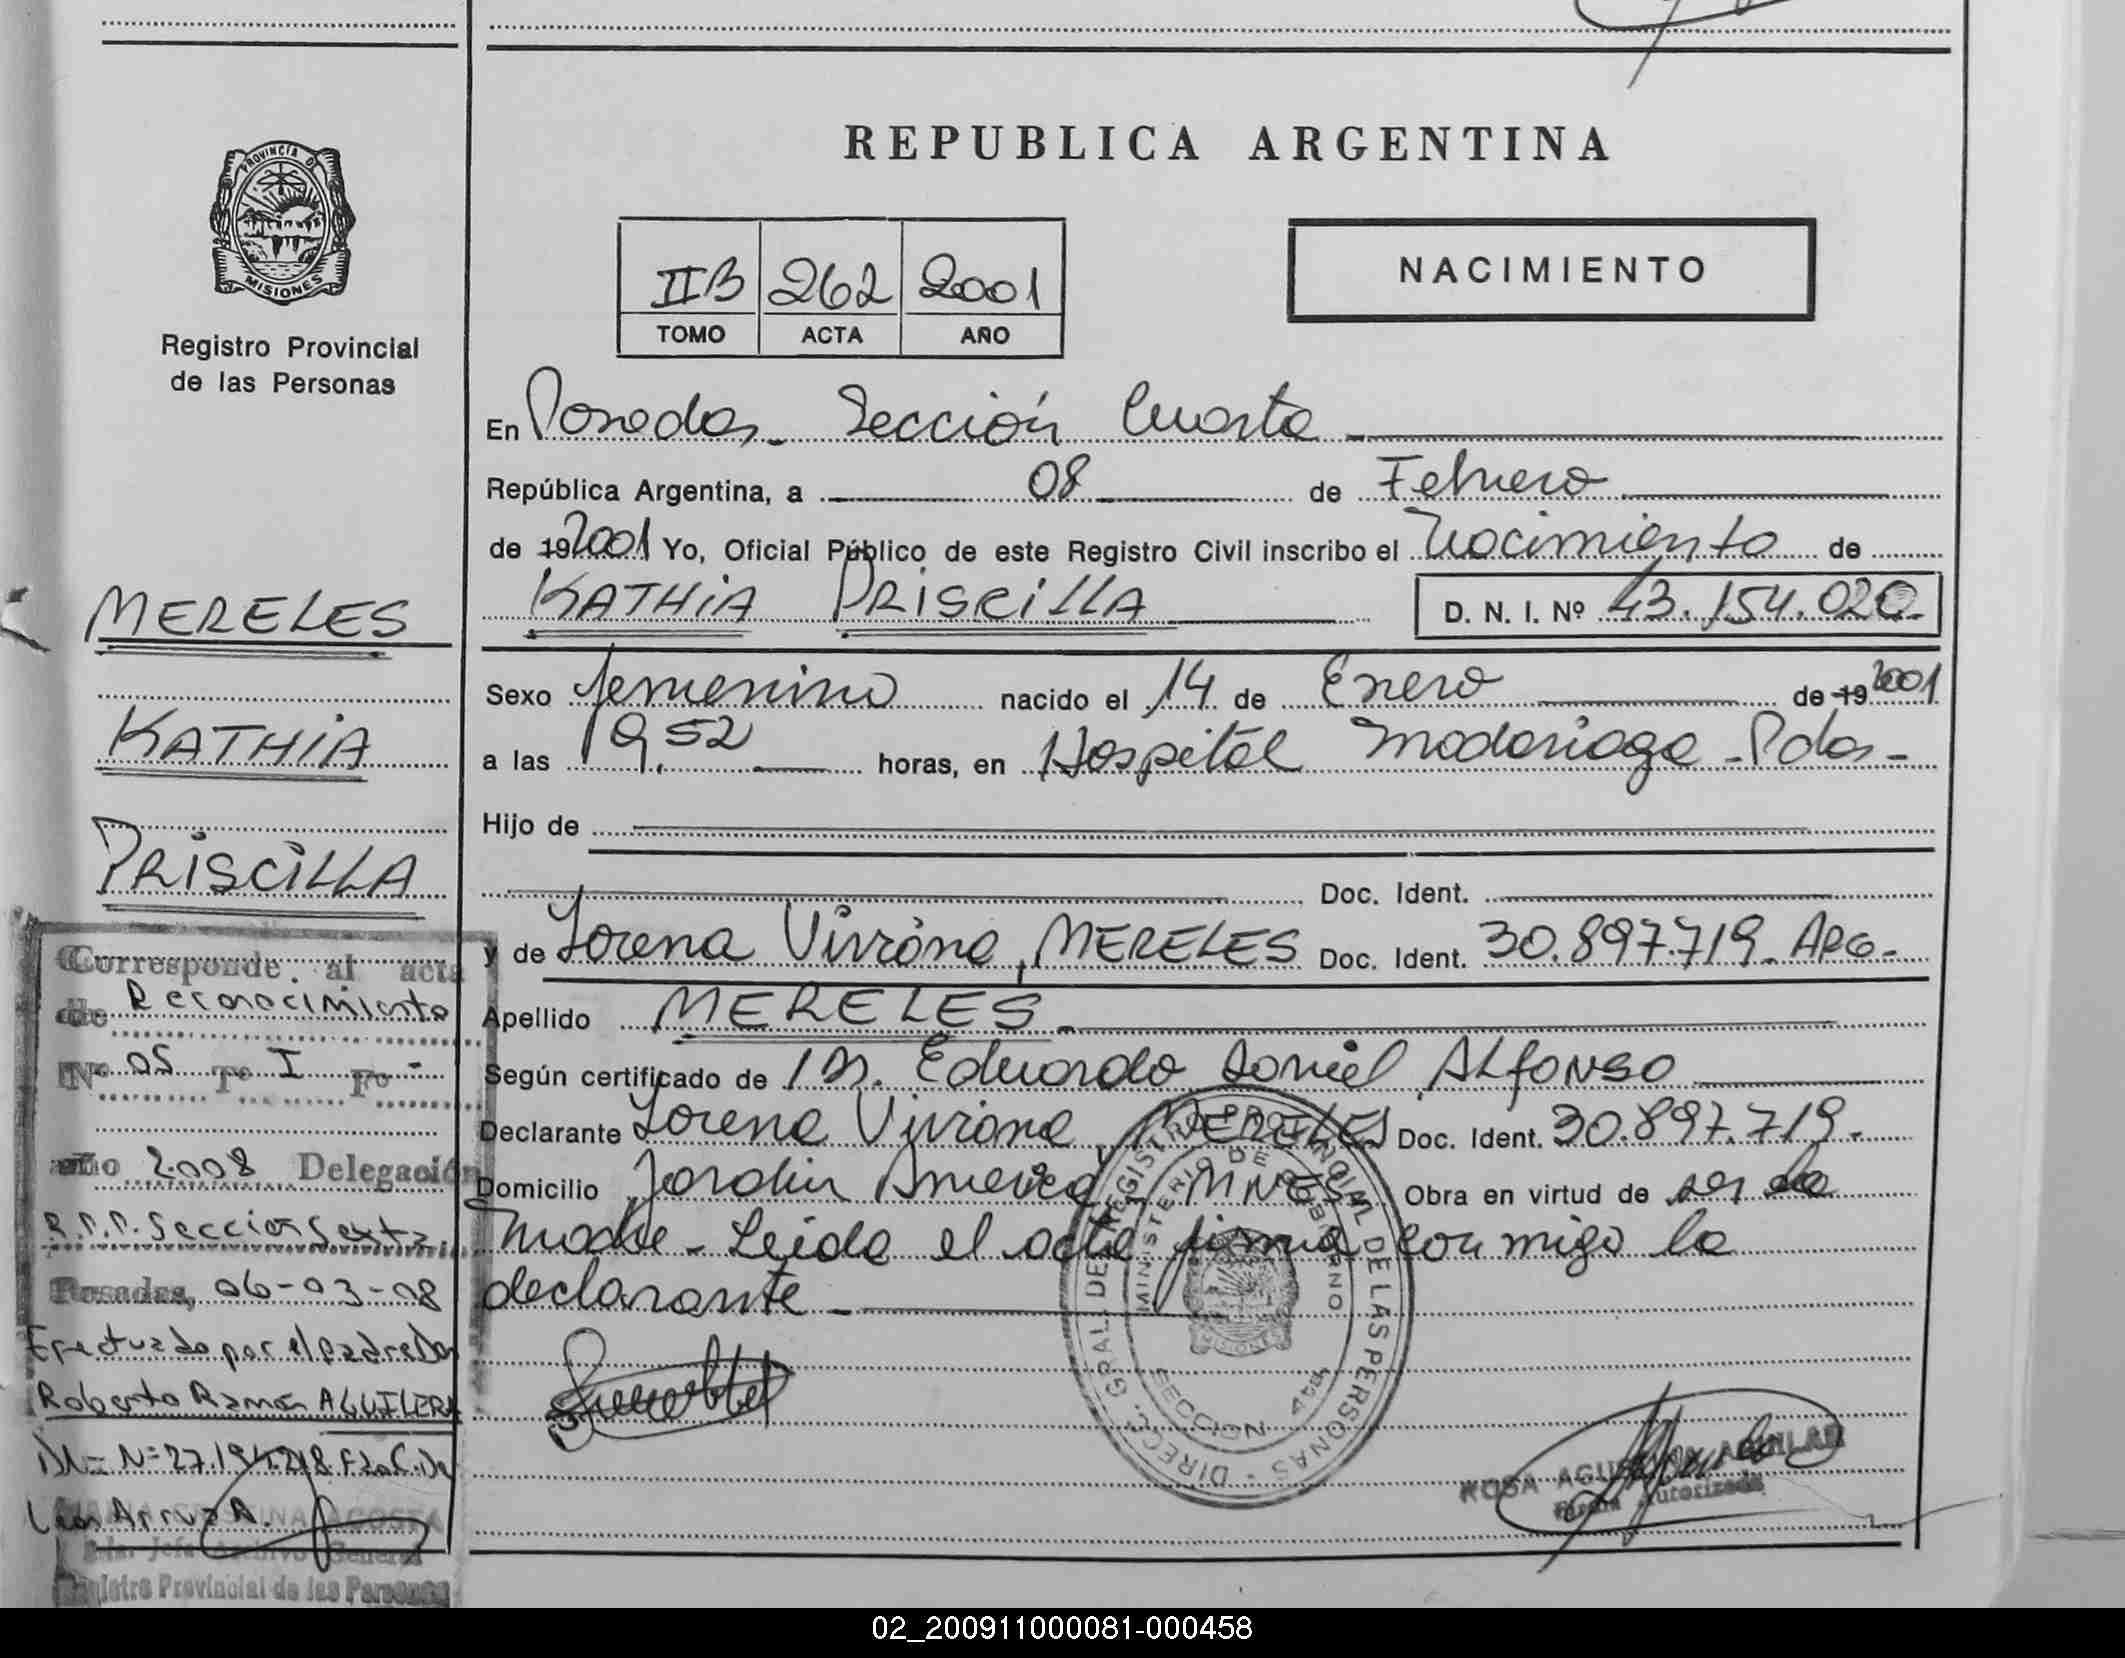 PROVINCIA DE
MISIONES
Registro Provincial
de las Personas
REPUBLICA ARGENTINA
IIB 262 2001
TOMO ACTA AÑO
NACIMIENTO
En Posadas - Sección Cuarta -
República Argentina, a 08 de Febrero
de 192001 Yo, Oficial Público de este Registro Civil inscribo el Nacimiento de
KATHIA PRISCILLA D. N. I. Nº 43.154.020.
Sexo femenino nacido el 14 de Enero de 19 2001
a las 19,52 horas, en Hospital Madariaga - Pdas -
Hijo de
Doc. Ident.
y de Lorena Viviana, MERELES Doc. Ident. 30.897.719 - ARG -
Apellido MERELES -
Según certificado de Dr. Eduardo Daniel ALFONSO
Declarante Lorena Viviana, MERELES Doc. Ident. 30.897.719 -
Domicilio Jardin America, MNES. Obra en virtud de ser la
madre - Leida el acta firma conmigo la
declarante -
MERELES
KATHIA
PRISCILLA
Corresponde al acta
de Reconocimiento
Nº 05 Tº I Fº -
año 2.008 Delegación
R.P.P. Sección Sexta.
Posadas, 06-03-08
Efectuado por el padre Don
Roberto Ramón AGUILERA
DNI= N=27.194.218.
ACOSTA
Jefa Archivo General
Registro Provincial de las Personas
DIREC. GRAL. DE REGISTRO PROVINCIAL DE LAS PERSONAS -
MINISTERIO DE GOBIERNO
SECCION 4ta
MISIONES
ROSA AGUSTINA AGUILAR
Firma Autorizada
02_200911000081-000458